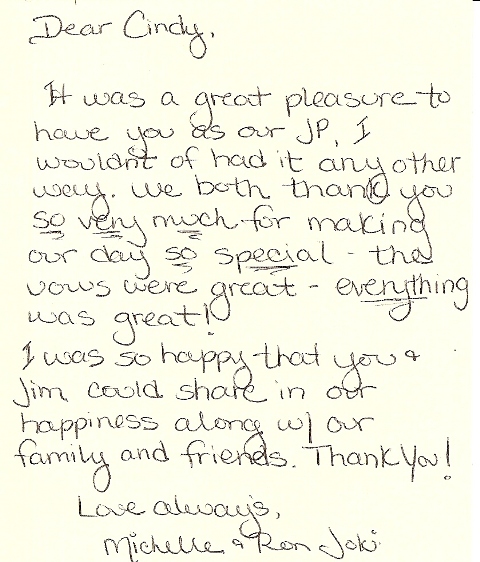 Dear Cindy,
It was a great pleasure to
have you as our JP, I
wouldnt of had it any other
way. We both thank you
so very much for making
our day so special - the
vows were great - everything
was great!
I was so happy that you &
Jim could share in our
happiness along w/ our
family and friends. Thank You!
Love always,
Michelle & Ron Joki